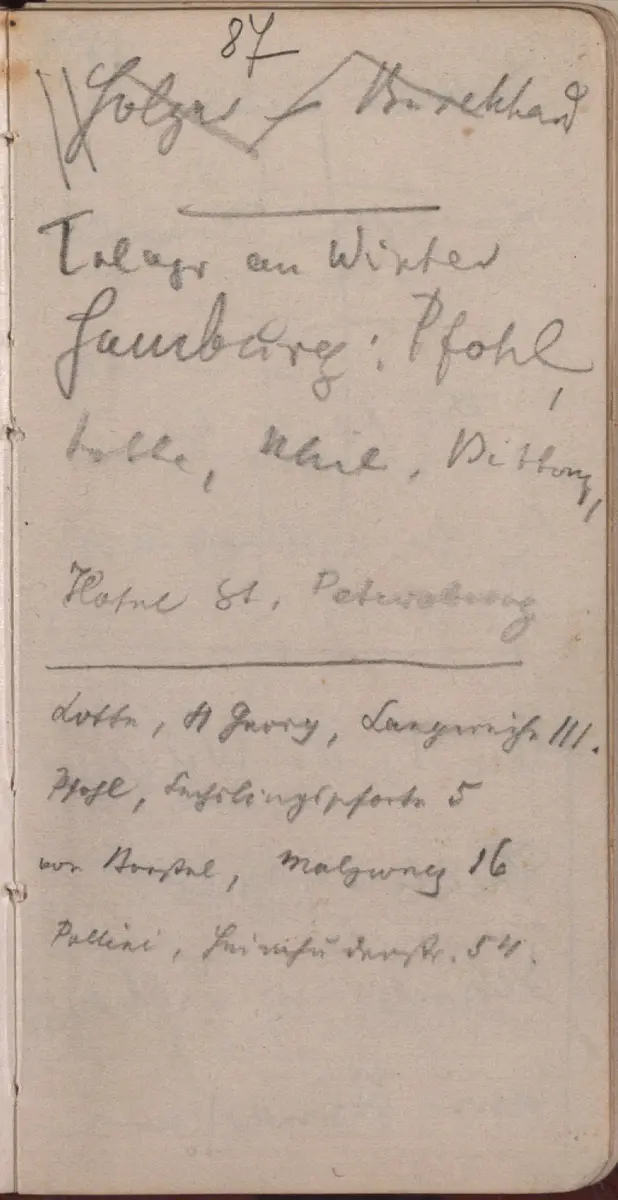 87
Holger – Burckhard
Telegr an Winter
Hamburg: Pfohl,
Lotte, Weil,
Hotel St. Petersburg
Lotte, St Georg, Langereihe 111.
Pfohl, Sechslingspforte 5
von Borstel, Malzweg 16
Pollini, Heimhuderstr. 54.